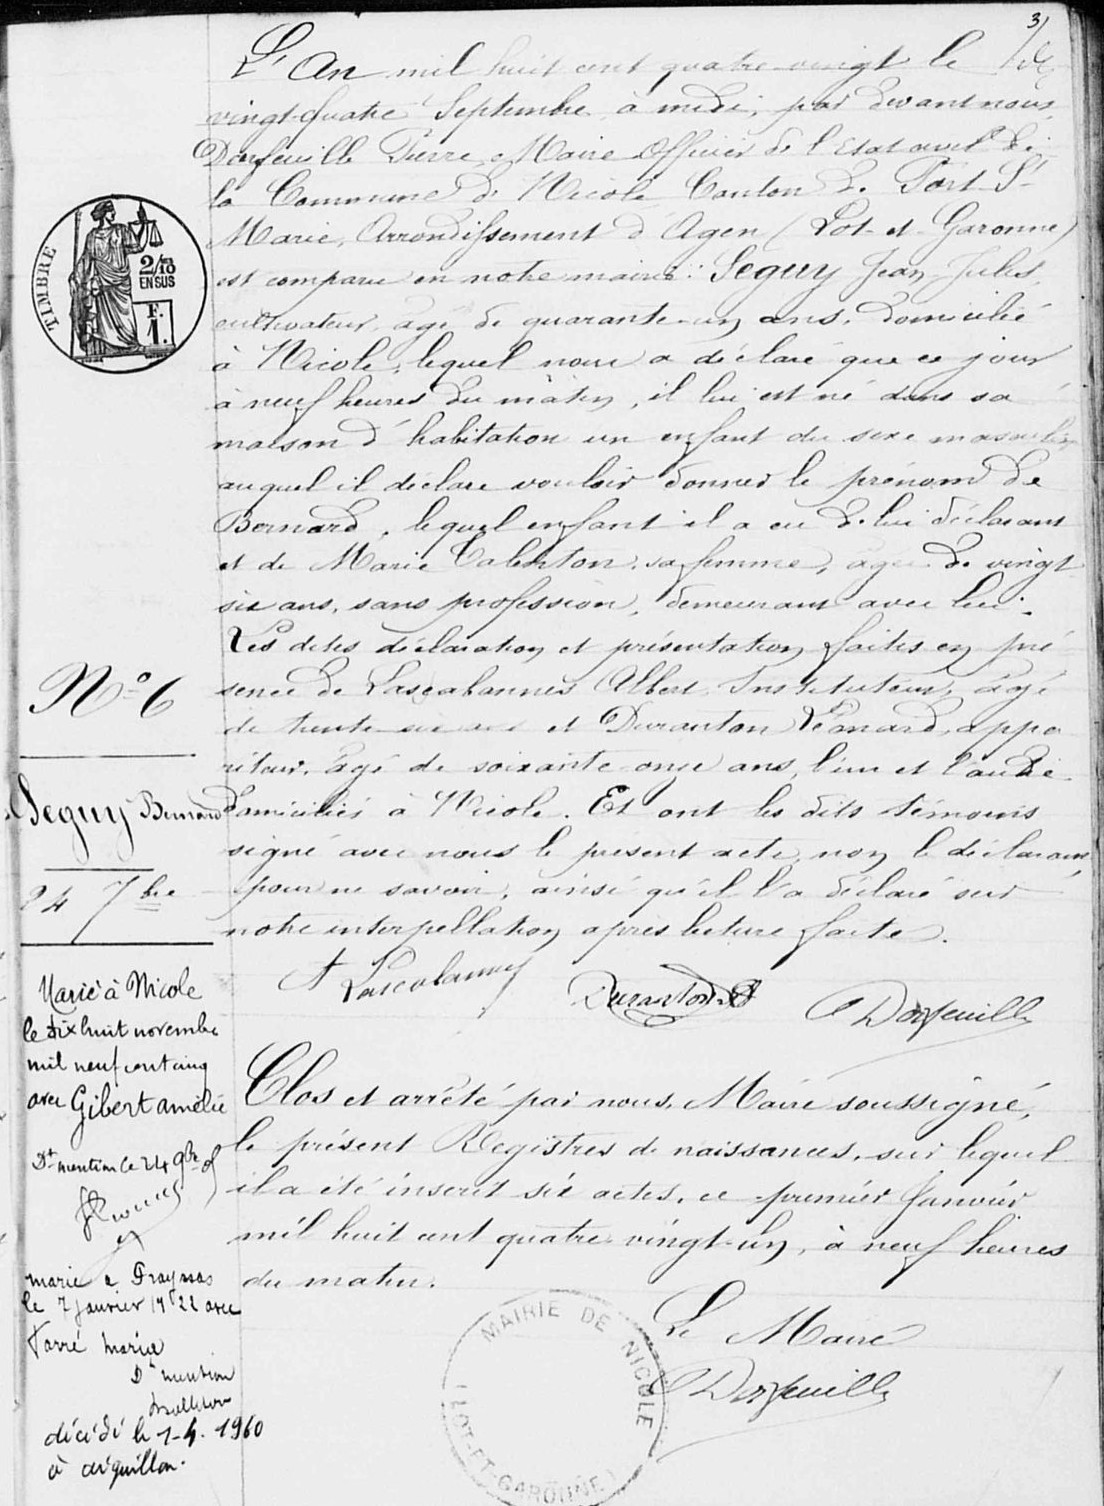 3
L'An mil huit cent quatre-vingt le
vingt-quatre Septembre à midi, par devant nous
Dorfeuille Pierre Maire Officier de l'Etat civil de
la Commune de Nicole Canton de Port Ste
Marie, Arrondissement d'Agen (Lot-et-Garonne)
est comparu en notre mairie: Seguy Jean Jules,
cultivateur, âgé de quarante-un ans, domicilié
à Nicole, lequel nous a déclaré que ce jour
à neuf heures du matin, il lui est né dans sa
maison d'habitation un enfant du sexe masculin
auquel il déclare vouloir donner le prénom de
Bernard, lequel enfant il a eu de lui déclarant
et de Marie sa femme, âgée de vingt
six ans, sans profession, demeurant avec lui.
Les dites déclaration et présentation faites en pré
sence de Lascabannes Albert, Instituteur, âgé
de trente ans et Duranton Léonard, appa
riteur, âgé de soixante-onze ans, l'un et l'autre
domiciliés à Nicole. Et ont les dits témoins
signé avec nous le présent acte, non le déclarant
pour ne savoir, ainsi qu'il l'a déclaré sur
notre interpellation après lecture faite.
A Lascabannes Duranton Dorfeuille
Clos et arrêté par nous, Maire soussigné,
le présent Registres de naissances, sur lequel
il a été inscrit six actes, ce premier Janvier
mil huit cent quatre-vingt-un, à neuf heures
du matin.
Le Maire
Dorfeuille
MAIRIE DE NICOLE
(LOT-ET-GARONNE)
TIMBRE
2/10
EN SUS
F.
1.
No 6
Seguy Bernard
24 7bre
Marié à Nicole
le dix huit novembre
mil neuf cent cinq
avec Gibert amélie
Dt mention le 24 9bre
marié a Frayssas
le 7 janvier 1922 avec
Tarré maria
Dt mention
décédé le 1-4-1960
à aiguillon.